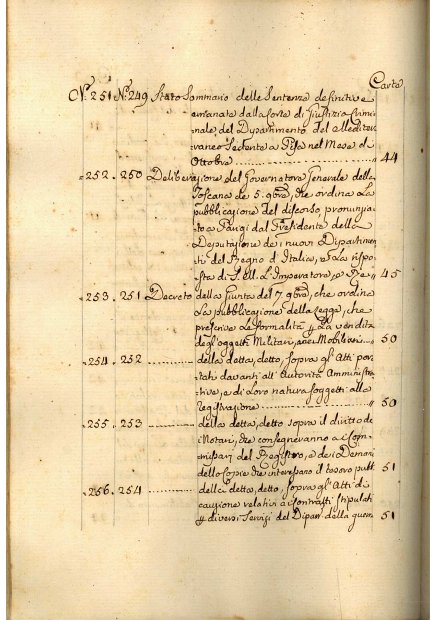 Carte
Nº. 251. Nº. 249. Stato Sommario delle Sentenze definitive
emanate dalla Corte di Giustizia Crimi
nale del Dipartimento del Mediter
raneo Sedente a Pisa nel Mese d
Ottobre 44
252. 250 Deliberazione del Governatore Generale della
Toscana de 5. 9bre, che ordina La
pubblicazione del discorso pronunzia
to a Parigi dal Presidente della
Deputazione de i nuovi Dipartimen
ti del Regno d'Italia, e La rispo
sta di S. M. L'Imperatore, e Re 45
253. 251 Decreto della Giunta del 7 9bre, che ordina
La pubblicazione della Legge, che
prescrive Le formalità La vendita
degli oggetti Militari, Mobiliari 50
254. 252 della detta, detto, sopra gl'Atti por
tati davanti all'Autorità Amministra
tive, e di Loro natura soggetti alla
Registrazione 50
255. 253 della detta, detto sopra il diritto de
i Notari, che consegneranno a i Com
missari del Registro, e de i Demani
delle Copie che interessano il tesoro pubb 51
256. 254 della detta, detto, sopra gl'Atti di
cauzione relativi a Contratti Stipulati
diversi Servizi del Dipar. della guerra 51